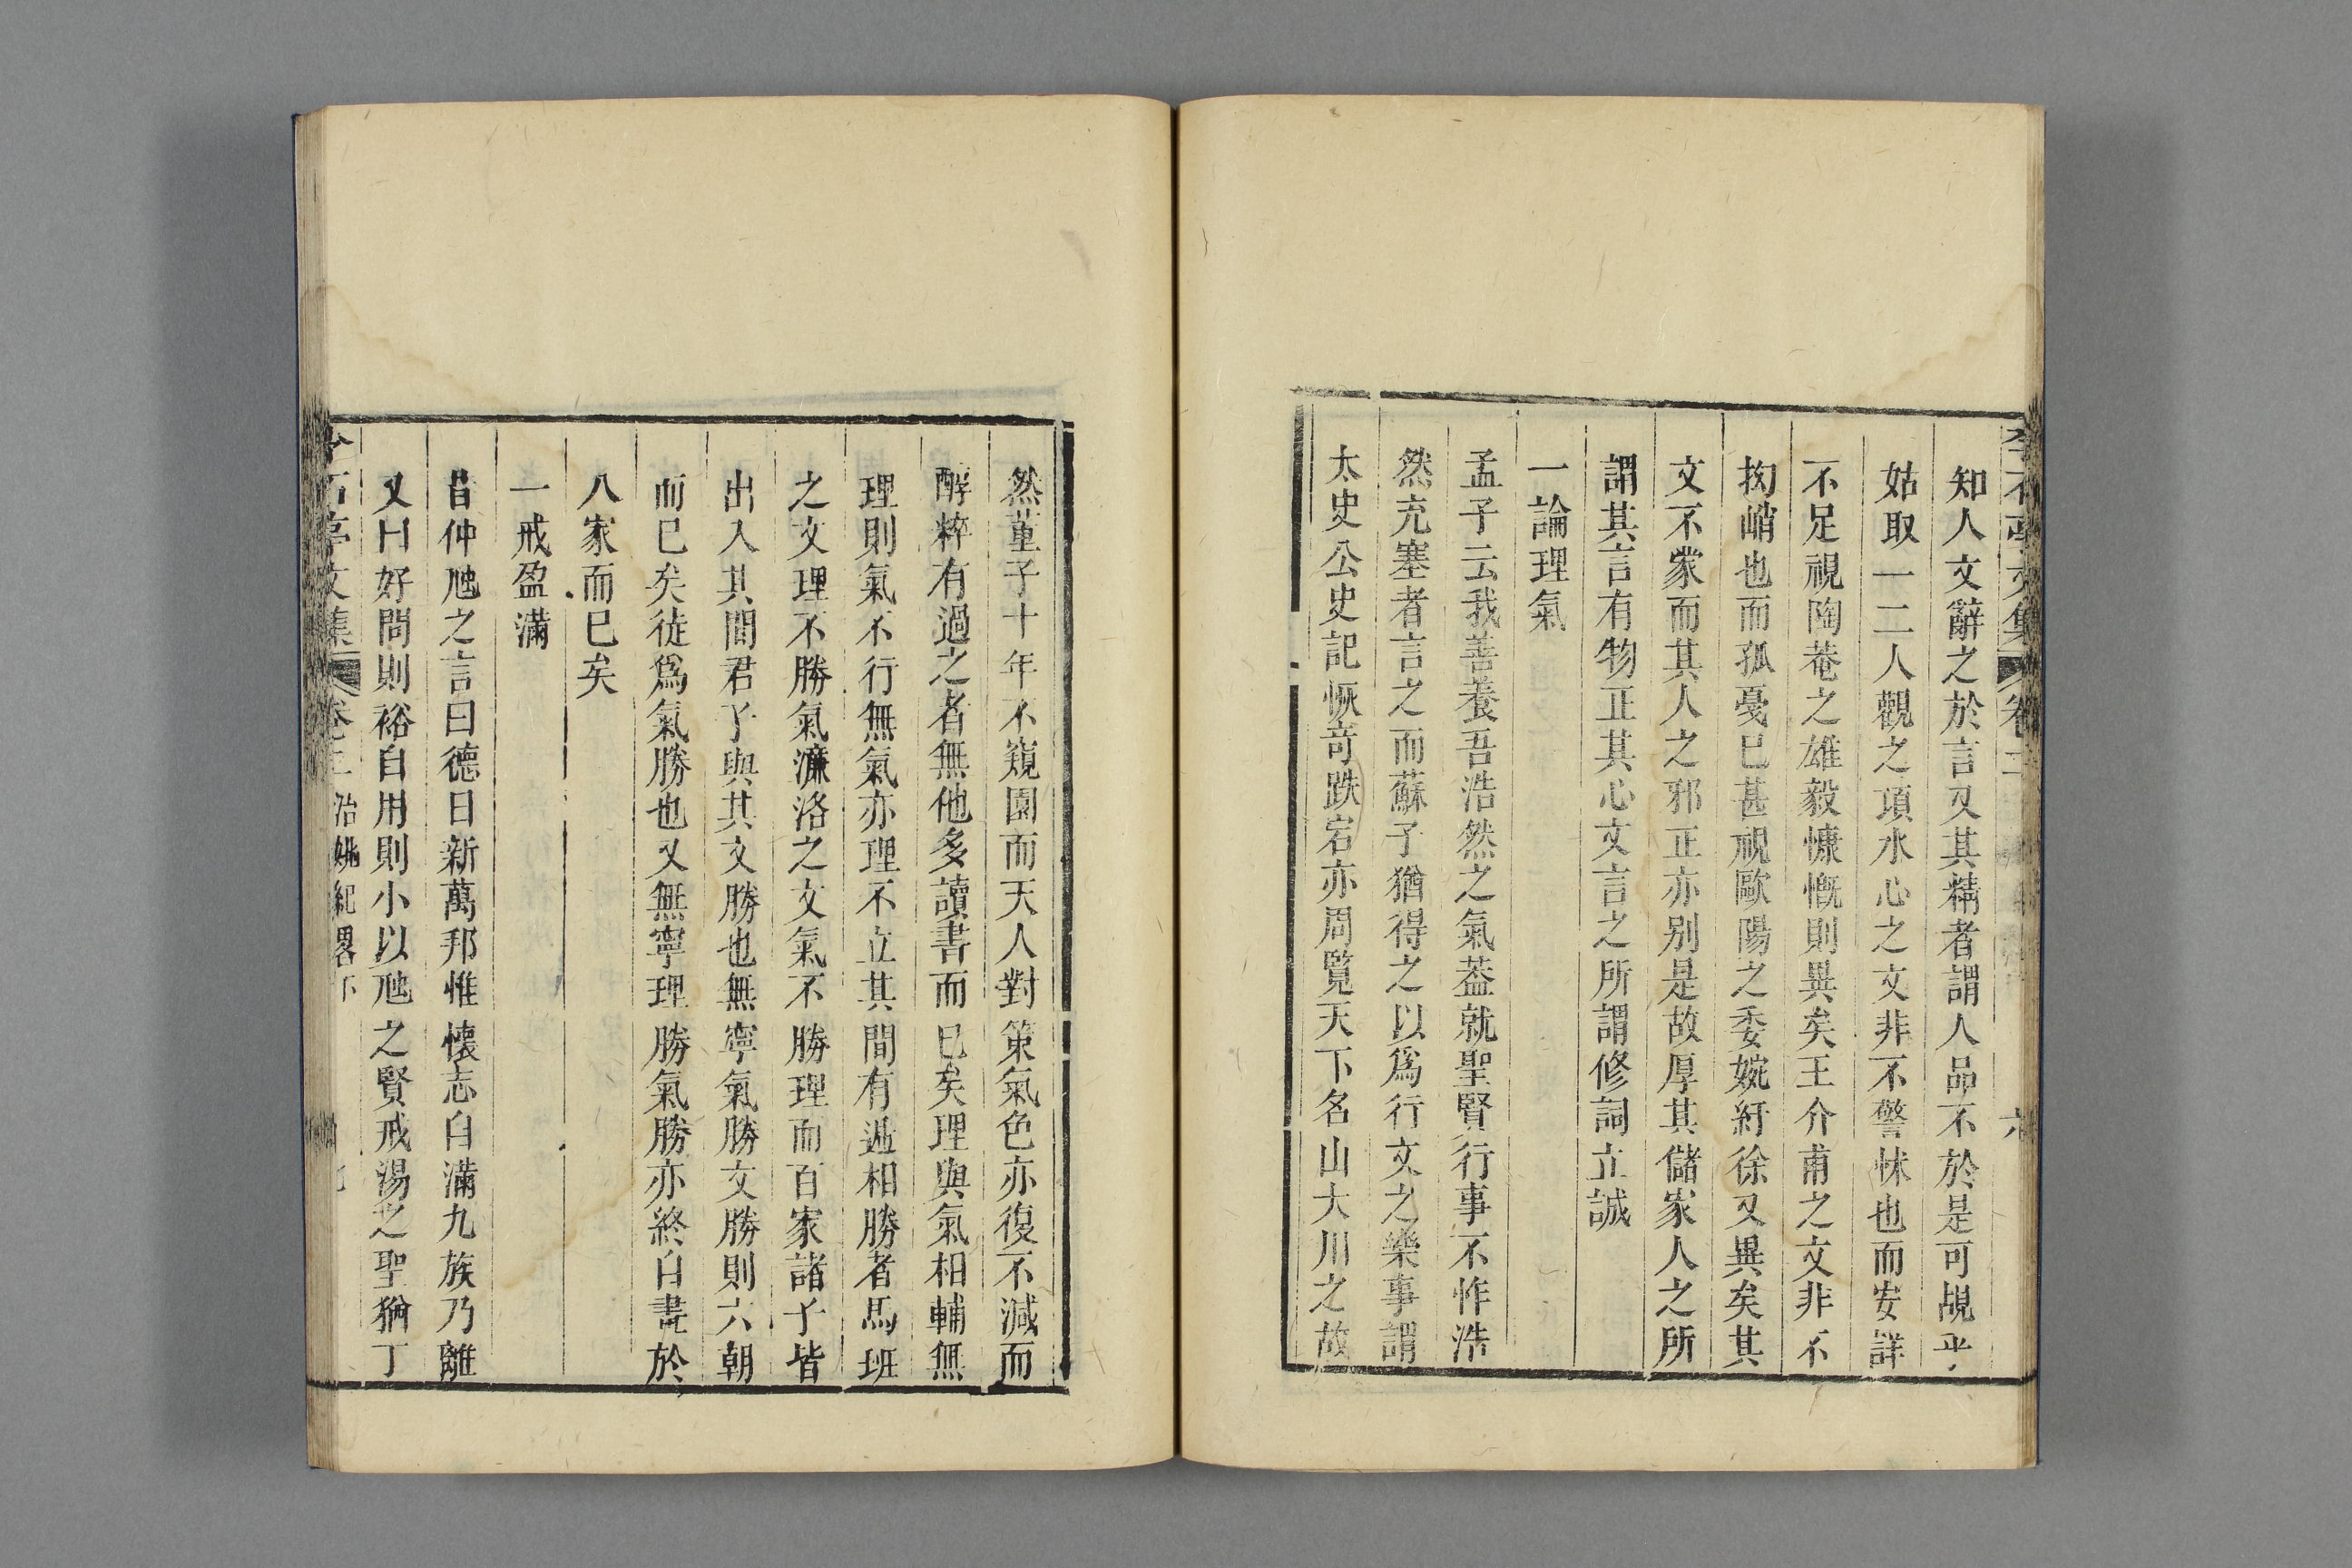 李石亭文集 卷二 六
知人文辭之於言又其精者謂人品不於是可覘乎
姑取一二人觀之項水心之文非不警悚也而安詳
不足視陶菴之雄毅慷慨則異矣王介甫之文非不
拗峭也而孤戞已甚視歐陽之委婉紆徐又異矣其
文不䝉而其人之邪正亦别是故厚其儲家人之所
謂其言有物正其心文言之所謂修詞立誠
一論理氣
孟子云我善養吾浩然之氣葢就聖賢行事不怍浩
然充塞者言之而蘇子猶得之以爲行文之樂事謂
太史公史記恢竒跌宕亦周覽天下名山大川之故
然董子十年不窺園而天人對策氣色亦復不減而
醇粹有過之者無他多讀書而已矣理與氣相輔無
理則氣不行無氣亦理不立其間有遞相勝者馬班
之文理不勝氣濂洛之文氣不勝理而百家諸子皆
出入其間君子與其文勝也無寧氣勝文勝則六朝
而已矣徒爲氣勝也又無寧理勝氣勝亦終自畫於
八家而已矣
一戒盈滿
昔仲虺之言曰德日新萬邦惟懷志自滿九族乃離
又曰好問則裕自用則小以虺之賢戒湯之聖猶丁
李石亭文集 卷二 治姚紀畧下 七